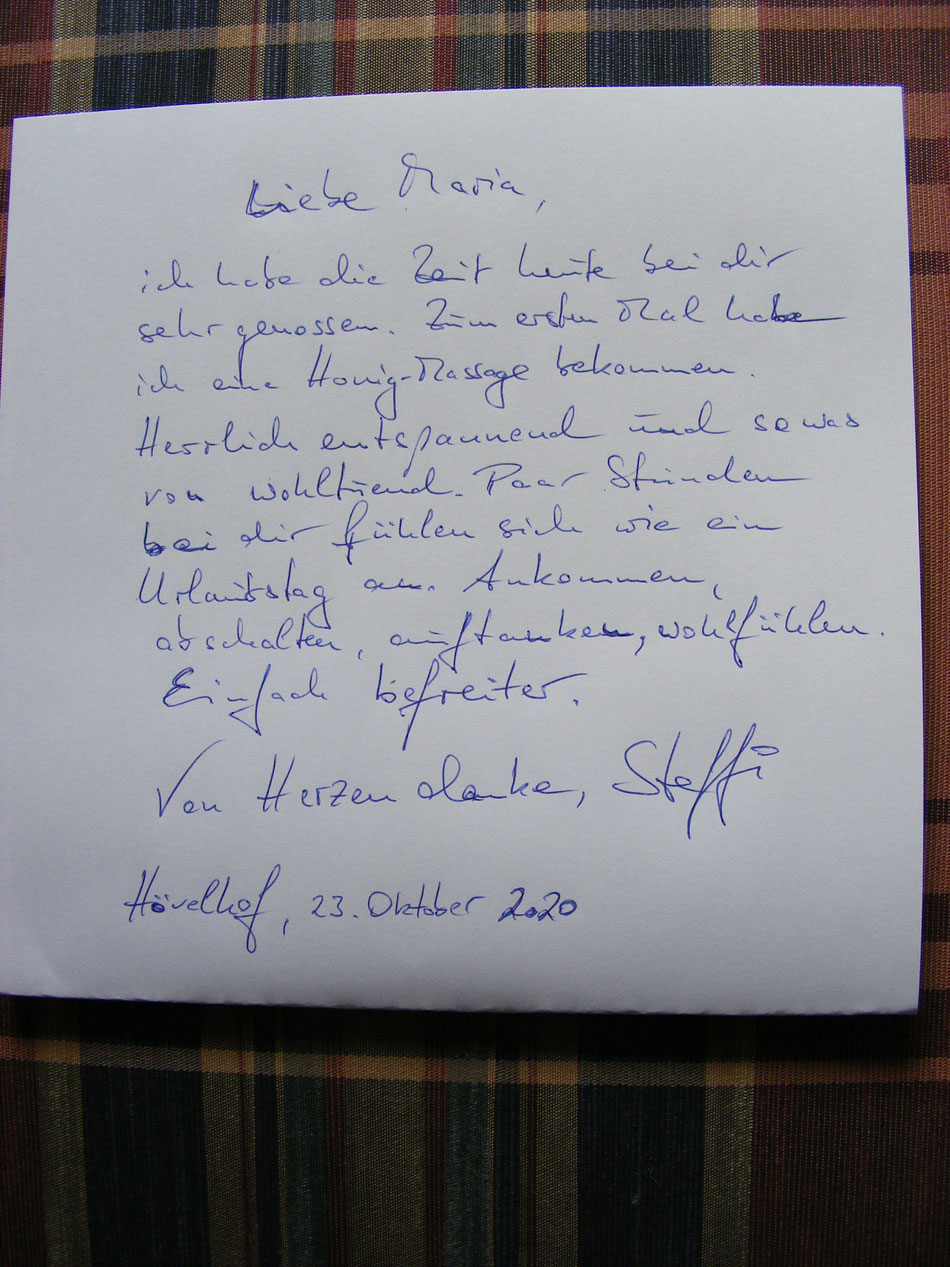 Liebe Maria,
ich habe die Zeit heute bei dir
sehr genossen. Zum ersten Mal habe
ich eine Honig-Massage bekommen.
Herrlich entspannend und sowas
von wohltuend. Paar Stunden
bei dir fühlen sich wie ein
Urlaubstag an. Ankommen,
abschalten, auftanken, wohlfühlen.
Einfach befreiter.
Von Herzen danke, Steffi
Hövelhof, 23. Oktober 2020